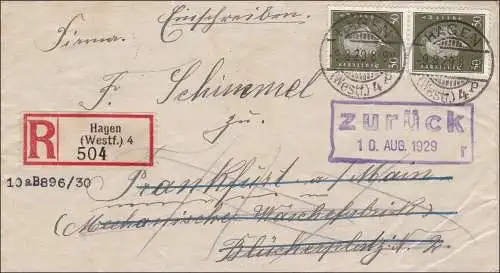 Einschreiben.
Firma.
F. Schimmel
zu.
R
Hagen
(Westf.) 4
504
10aB896/30
HAGEN
(Westf.) 4
HAGEN
(Westf.) 4
50
50
zurück
10. AUG. 1929
Frankfurt a/Main
(Mechanische Wäschefabrik)
Blücherplatz N. 2.